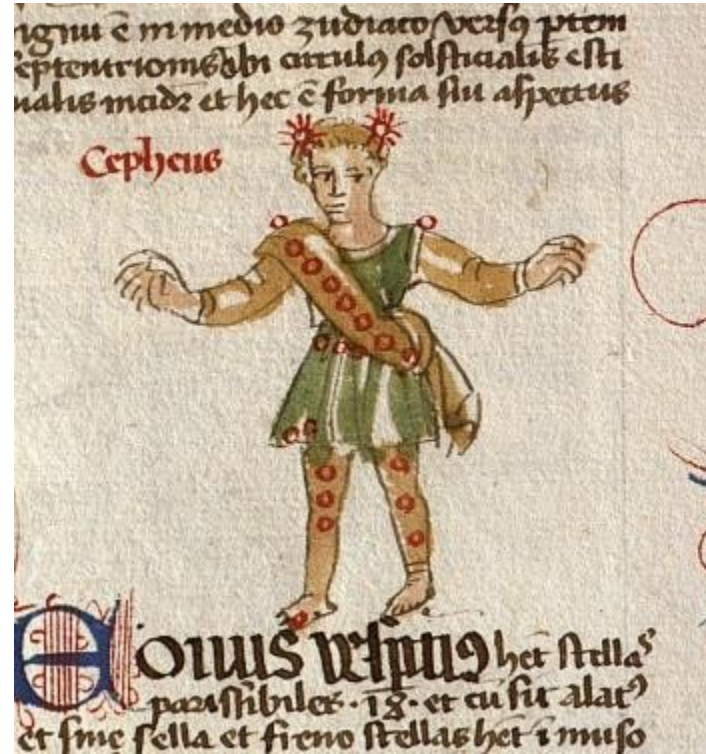 signū ē in medio zudiaco versꝰ ptem
septentrionis ubi circulꝰ solsticialis esti
ualis incidꝫ et hec ē forma siu aspectus
Cepheus
Equus vespinꝰ het stellas
passibiles · 18 · et cū sit alatꝰ
et sine sella et freno stellas het ī muso